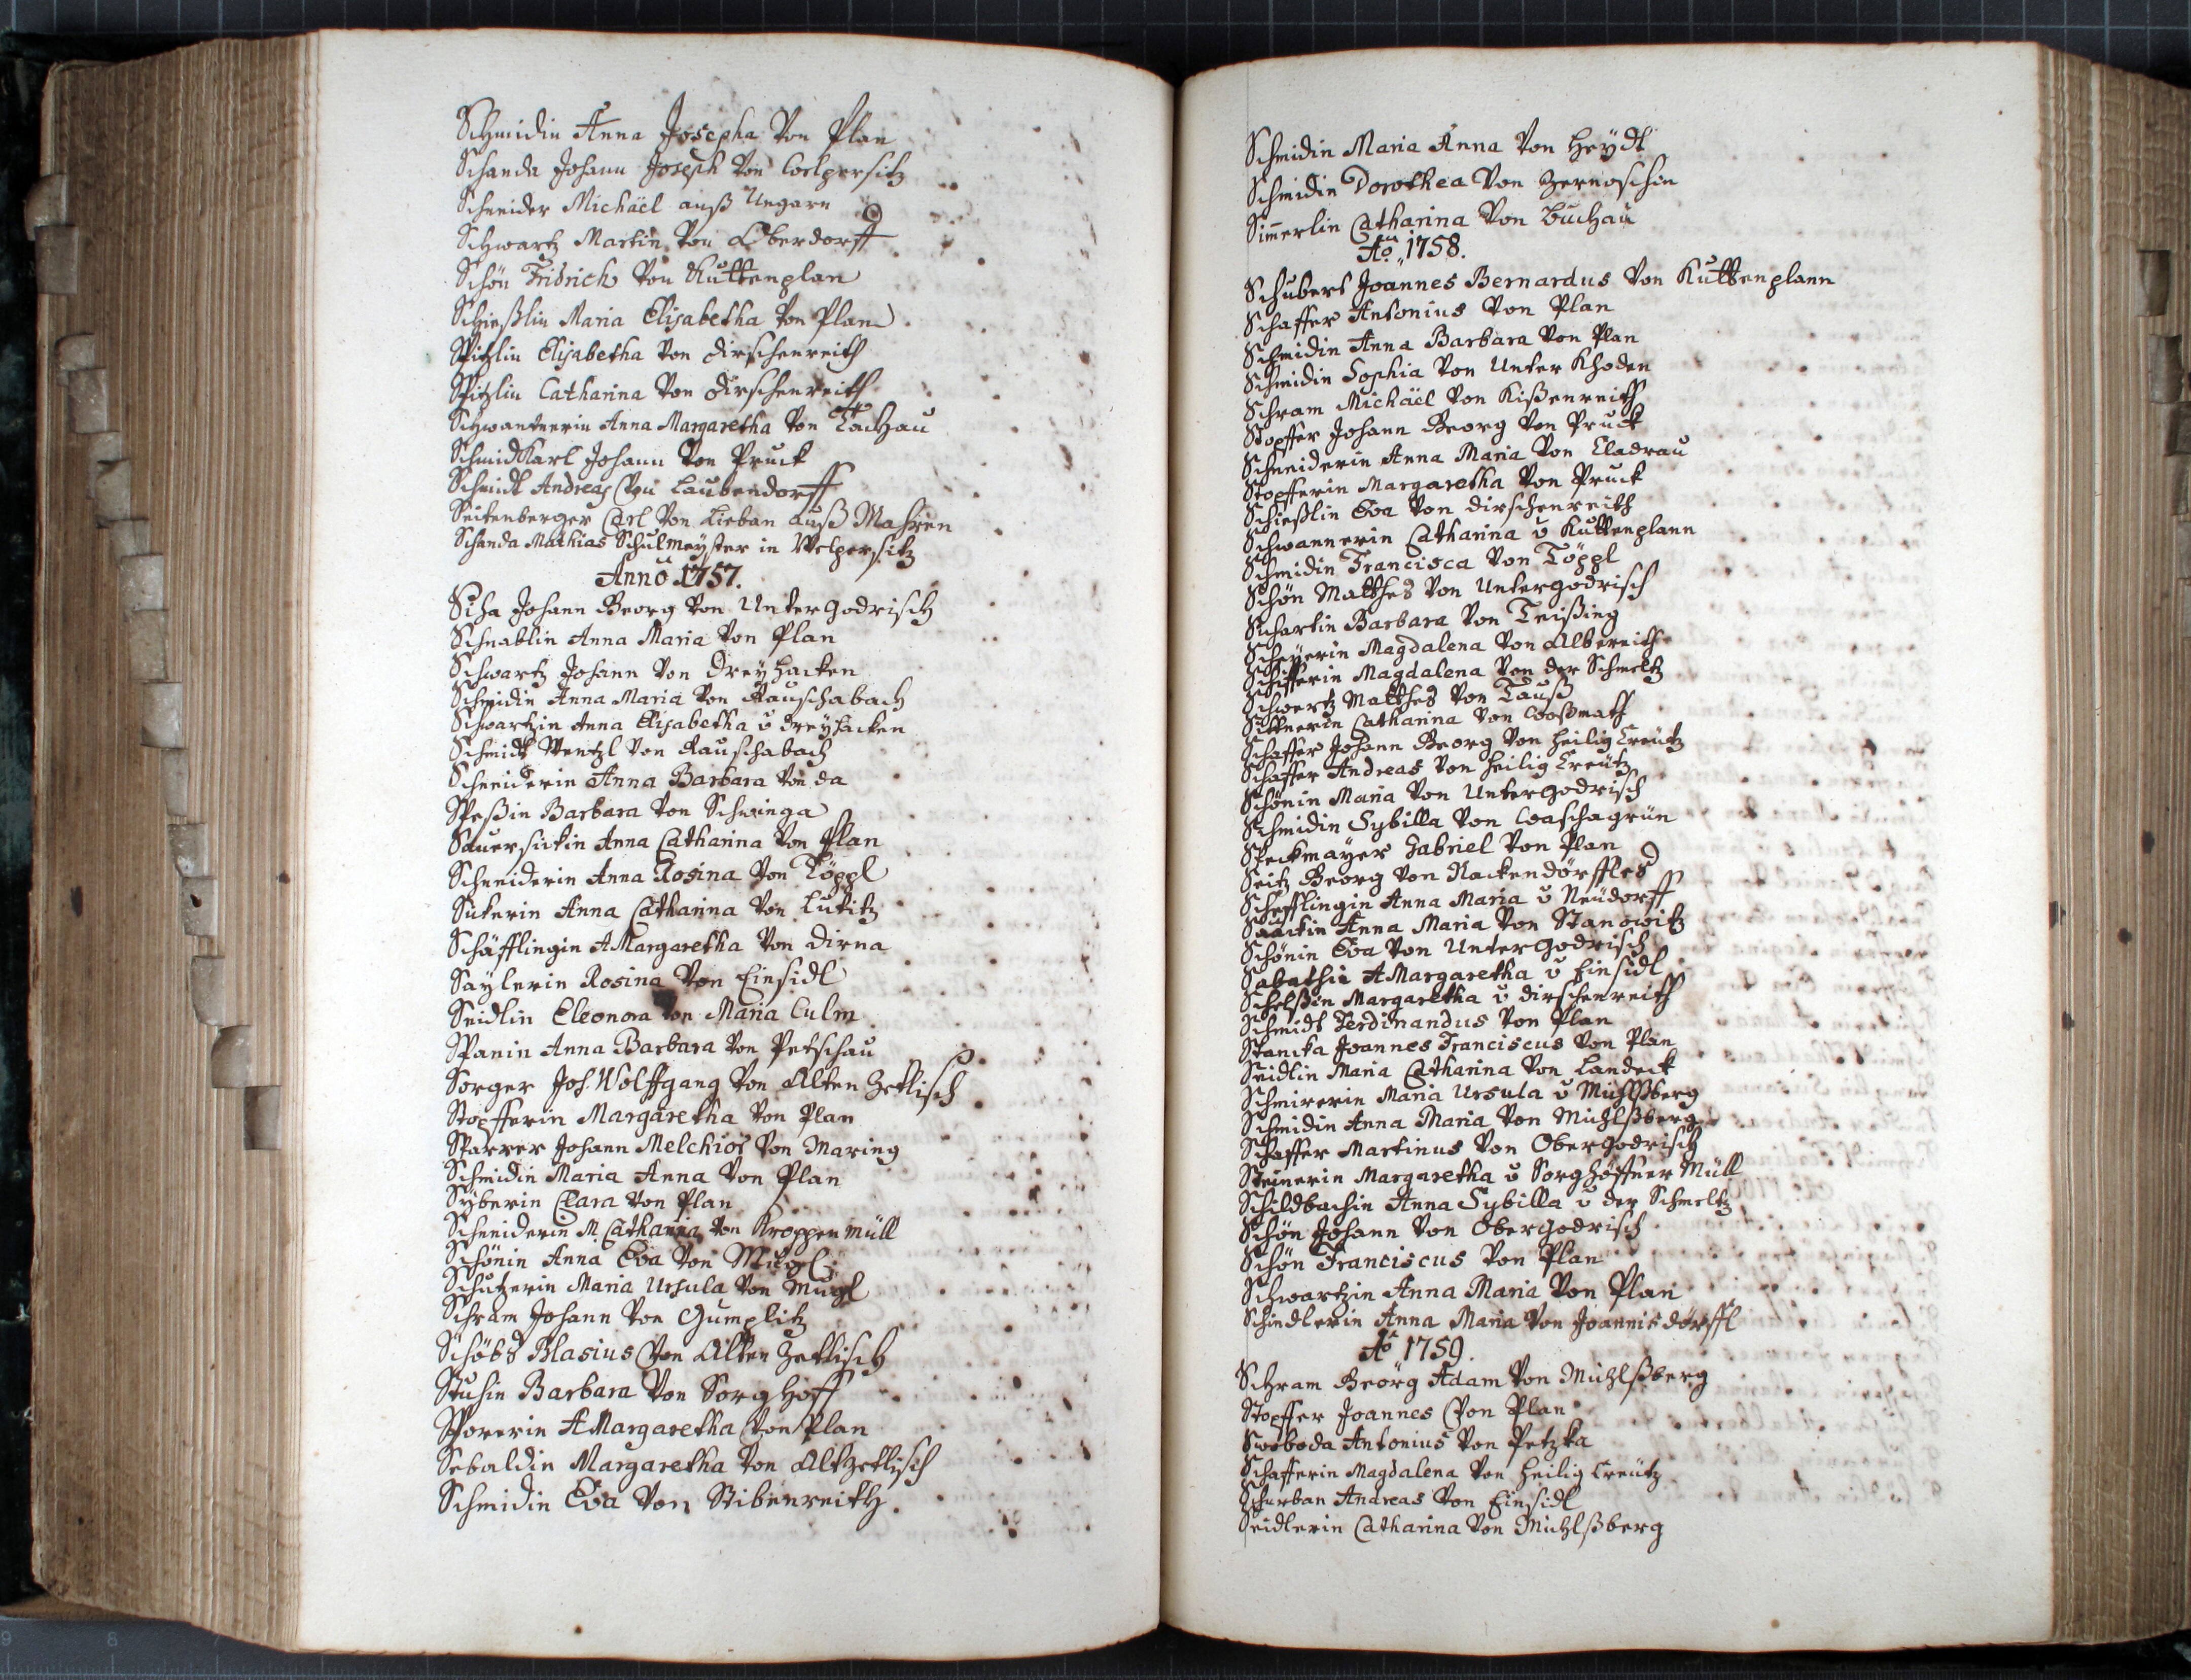 Schmidin Anna Josepha Von Plan
Schanda Johann Joseph Von Welpersitz
Schneider Michäel auß Ungarn
Schwartz Martin Von Oberdorff
Schön Fridrich Von Kuttenplan
Schießlin Maria Elisabetha Von Plan
Spitzlin Elisabetha Von Dirschenreith
Spitzlin Catharina Von Dirschenreith
Schwantnerin Anna Margaretha Von Tachau
Schmid Karl Johann Von Pruck
Schmidt Andreas Von Laubendorff
Seitenberger Carl Von Lieban auß Mahren
Schanda Mathias Schulmeyster in Welpersitz
Anno 1757.
Siha Johann Georg Von Untergodrisch
Schnablin Anna Maria Von Plan
Schwartz Johann Von Dreyhacken
Schmidin Anna Maria Von Rauschabach
Schwartzin Anna Elisabetha v Dreyhacken
Schmidt Wentzl Von Rauschabach
Schneiderin Anna Barbara Von da
Speßin Barbara Von Schwinga
Sauersickin Anna Catharina Von Plan
Schneiderin Anna Rosina Von Töppl
Sickerin Anna Catharina Von Lukitz
Schäfflingin A Margaretha Von Dirna
Saylerin Rosina Von Einsidl
Seidlin Eleonora Von Maria Culm
Spanin Anna Barbara Von Petschau
Sorger Joh. Wolffgang Von Alten Zetlisch
Stopfferin Margaretha Von Plan
Sparrer Johann Melchior Von Maring
Schmidin Maria Anna Von Plan
Syberin Clara Von Plan
Schneiderin M Catharina Von Kroppen Müll
Schönin Anna Eva Von Mugl
Schutzerin Maria Ursula Von Mugl
Schram Johann Von Gumplitz
Schöbs Blasius Von Alten Zetlisch
Stuhin Barbara Von Sorghoff
Sporerin A Margaretha Von Plan
Sebaldin Margaretha Von Altzetlisch
Schmidin Eva Von Stibenreith
Schmidin Maria Anna Von Heydt
Schmidin Dorothea Von Zernoschin
Simerlin Catharina Von Buchau
Ao. 1758.
Schubert Joannes Bernardus Von Kuttenplann
Schaffer Antonius Von Plan
Schmidin Anna Barbara Von Plan
Schmidin Sophia Von Unter Khoden
Schram Michäel Von Kißenreith
Stopffer Johann Georg Von Pruck
Schneiderin Anna Maria Von Cladrau
Stopfferin Margaretha Von Pruck
Schießlin Eva Von Dirschenreith
Schwannerin Catharina v Kuttenplann
Schmidin Francisca Von Töppl
Schön Matthes Von Untergodrisch
Sichartin Barbara Von Teißing
Scheyerin Magdalena Von Albereith
Schifferin Magdalena Von der Schmeltz
Schwertz Matthes Von Tauß
Sittnerin Catharina Von Woßmath
Schaffer Johann Georg Von Heilig Creutz
Schaffer Andreas Von Heilig Creutz
Schönin Maria Von Untergodrisch
Schmidin Sybilla Von Waschagrün
Speckmayer Gabriel Von Plan
Seitz Georg Von Hackendörffles
Schefflingin Anna Maria v Neudorff
Saackin Anna Maria Von Stanowitz
Schönin Eva Von Untergodrisch
Sabathin A Margaretha v Einsidl
Schelßin Margaretha v Dirschenreith
Schmidt Ferdinandus Von Plan
Stancka Joannes Franciscus Von Plan
Seidlin Maria Catharina Von Landeck
Schmirerin Maria Ursula v Michlßberg
Schmidin Anna Maria Von Michlßberg
Schaffer Martinus Von Obergodrisch
Steinerin Margaretha v Sorghöffner Müll
Schildbachin Anna Sybilla v der Schmeltz
Schön Johann Von Obergodrisch
Schön Franciscus Von Plan
Schwartzin Anna Maria Von Plan
Schindlerin Anna Maria Von Joannisdörffl
Ao 1759.
Schram Georg Adam Von Michlßberg
Stopffer Joannes Von Plan
Swoboda Antonius Von Petzka
Schafferin Magdalena Von Heilig Creutz
Schurban Andreas Von Einsidl
Seidlerin Catharina Von Michlßberg